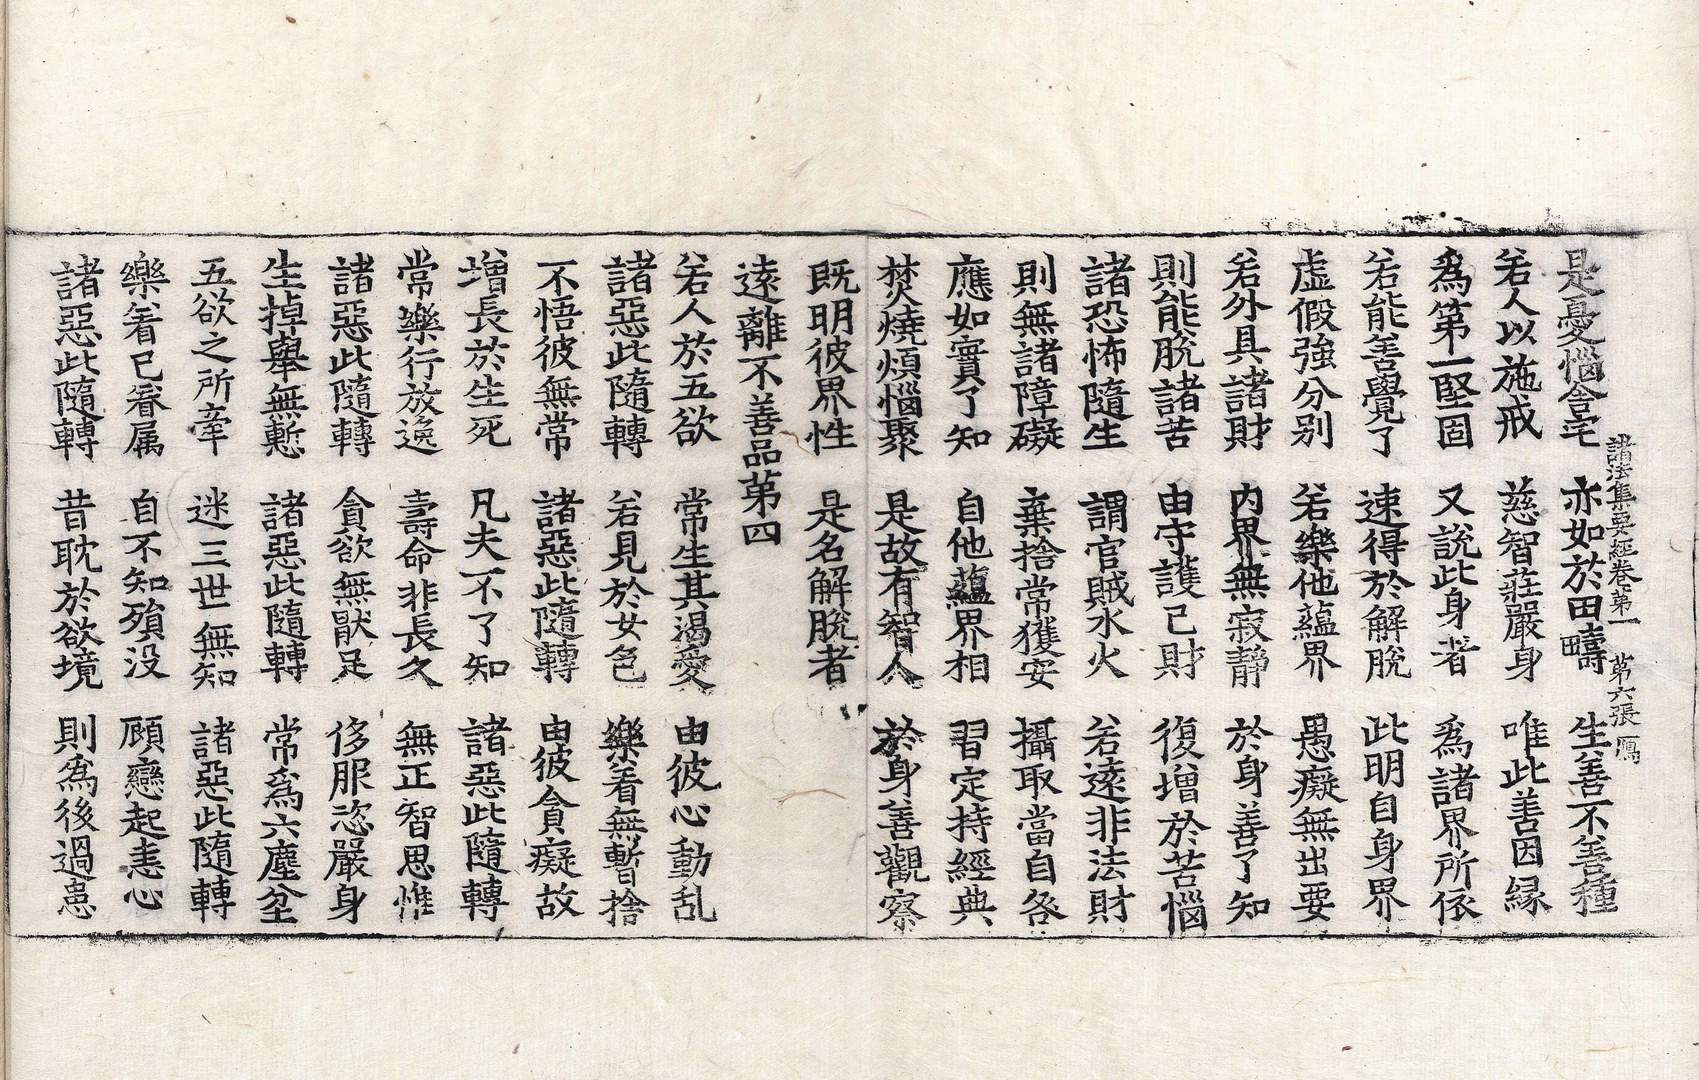 是憂惱舍宅 亦如於田疇 生善不善種
諸法集要經卷第一 第六張 鴈
若人以施戒 慈智莊嚴身 唯此善因縁
爲第一堅固 又說此身者 爲諸界所依
若能善覺了 速得於解脫 此明自身界
虛假強分別 若樂他蘊界 愚癡無出要
若外具諸財 內界無寂靜 於身善了知
則能脫諸苦 由守護己財 復增於苦惱
諸恐怖隨生 謂官賊水火 若遠非法財
則無諸障礙 棄捨常獲安 攝取當自咎
應如實了知 自他蘊界相 習定持經典
焚燒煩惱聚 是故有智人 於身善觀察
旣明彼界性 是名解脫者
遠離不善品第四
若人於五欲 常生其渴愛 由彼心動乱
諸惡此隨轉 若見於女色 樂着無暫捨
不悟彼無常 諸惡此隨轉 由彼貪癡故
增長於生死 凡夫不了知 諸惡此隨轉
常樂行放逸 壽命非長久 無正智思惟
諸惡此隨轉 貪欲無猒足 侈服恣嚴身
生掉舉無慙 諸惡此隨轉 常爲六塵坌
五欲之所牽 迷三世無知 諸惡此隨轉
樂着己眷属 自不知殞没 顧戀起恚心
諸惡此隨轉 昔耽於欲境 則爲後過患